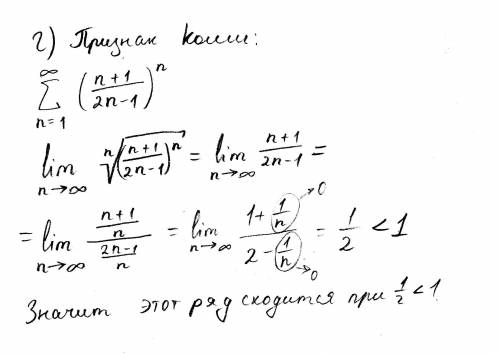 2) Признак Коши:
∞ ∑ n=1 ((n+1)/(2n-1))^n
lim n→∞ ⁿ√((n+1)/(2n-1))^n = lim n→∞ (n+1)/(2n-1) =
= lim n→∞ ((n+1)/n)/((2n-1)/n) = lim n→∞ (1+1/n →0)/(2-1/n →0) = 1/2 < 1
Значит этот ряд сходится при 1/2 < 1